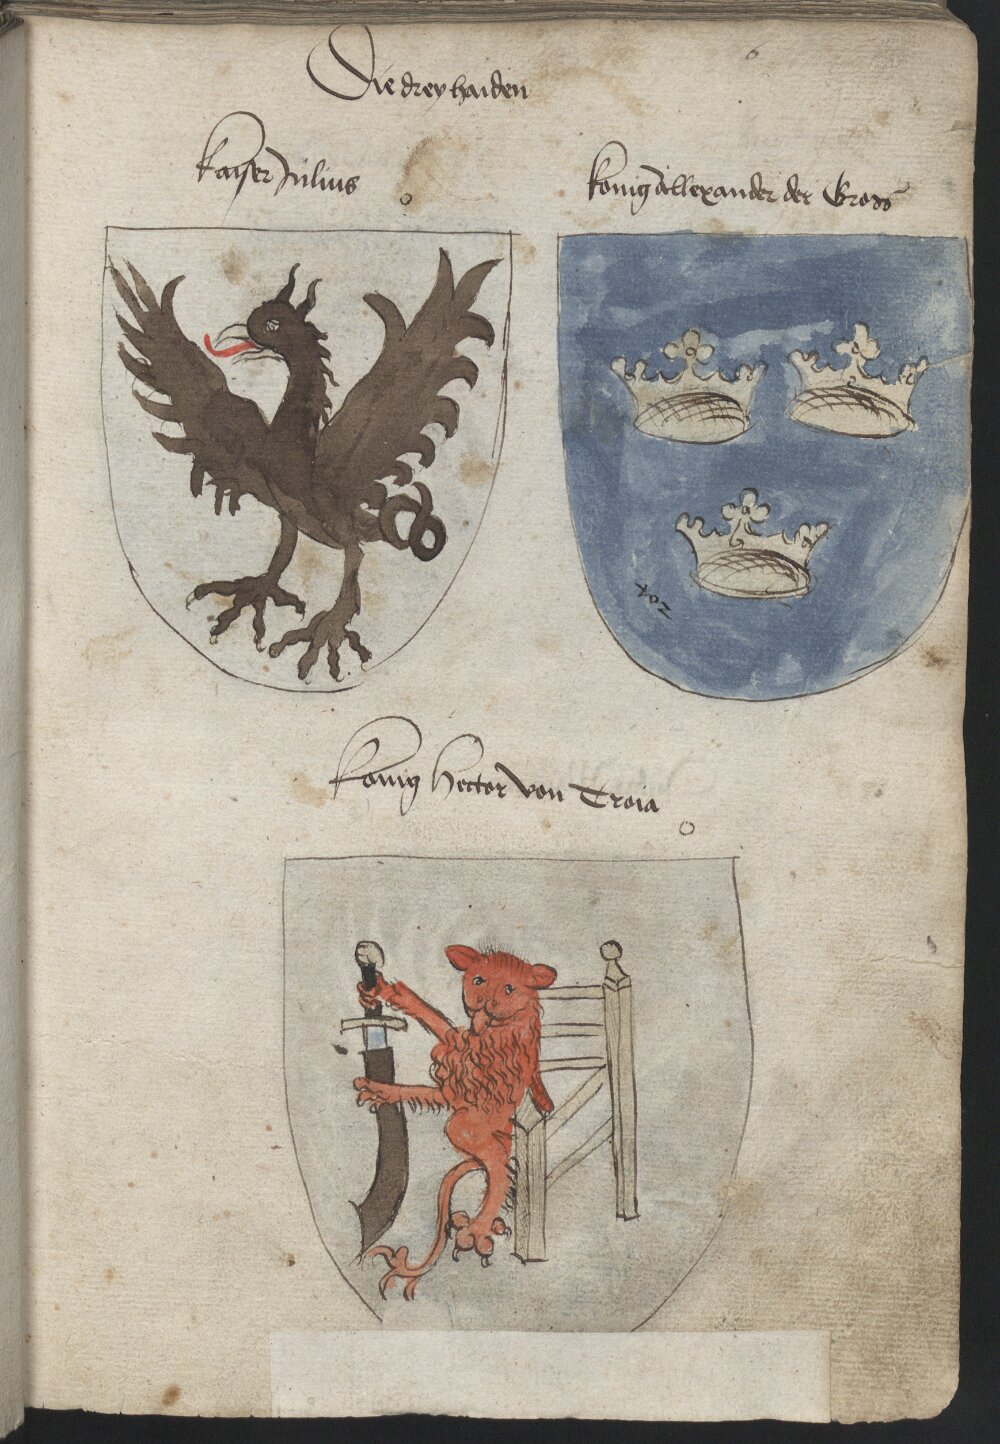 Die drey haiden
kaiser Julius
konig Allexander der Gross
konig Hector von Troia